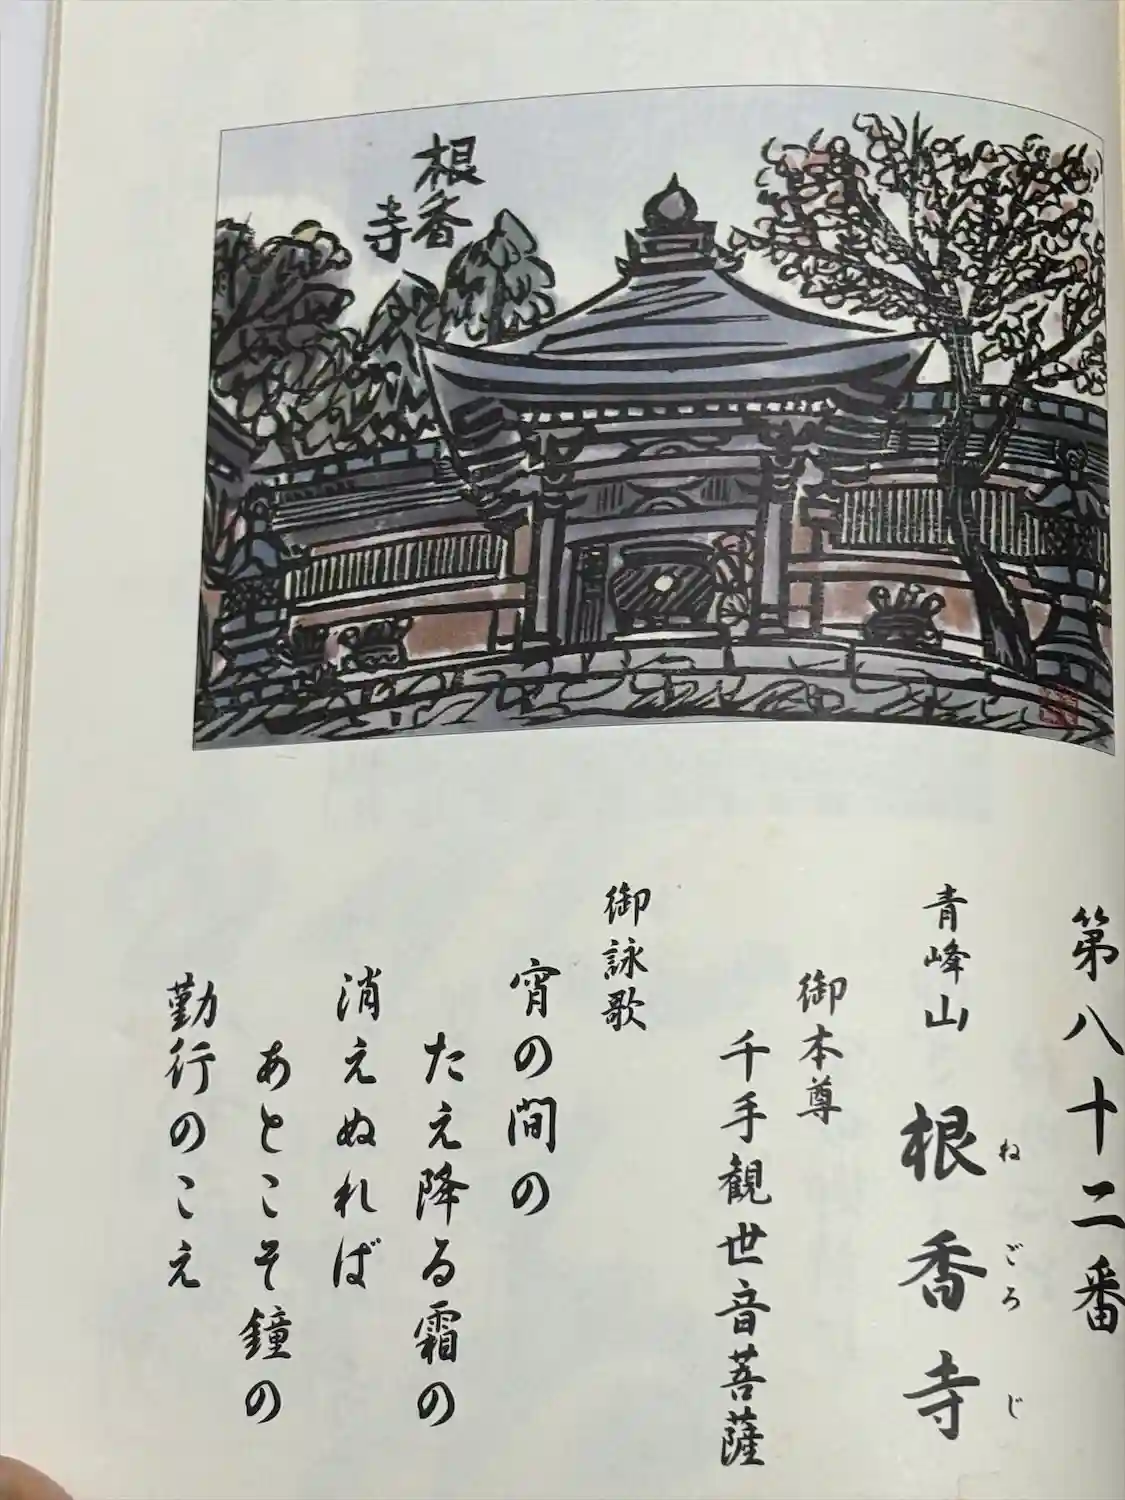 根香
寺
第八十二番
青峰山 根香寺
ね ごろ じ
御本尊
千手観世音菩薩
御詠歌
宵の間の
たえ降る霜の
消えぬれば
あとこそ鐘の
勤行のこえ